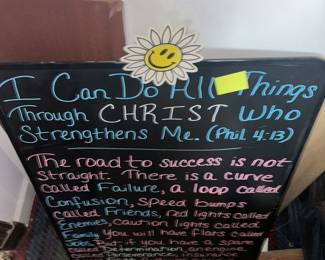 I Can Do All Things
Through CHRIST Who
Strengthens Me. (Phil 4:13)
The road to success is not
Straight. There is a curve
called Failure, a loop called
Confusion, Speed bumps
called Friends, red lights called
Enemies, caution lights called
Family. You will have flats called
Jobs. But, if you have a spare
called Determination, an engine
called Perseverance, insurance